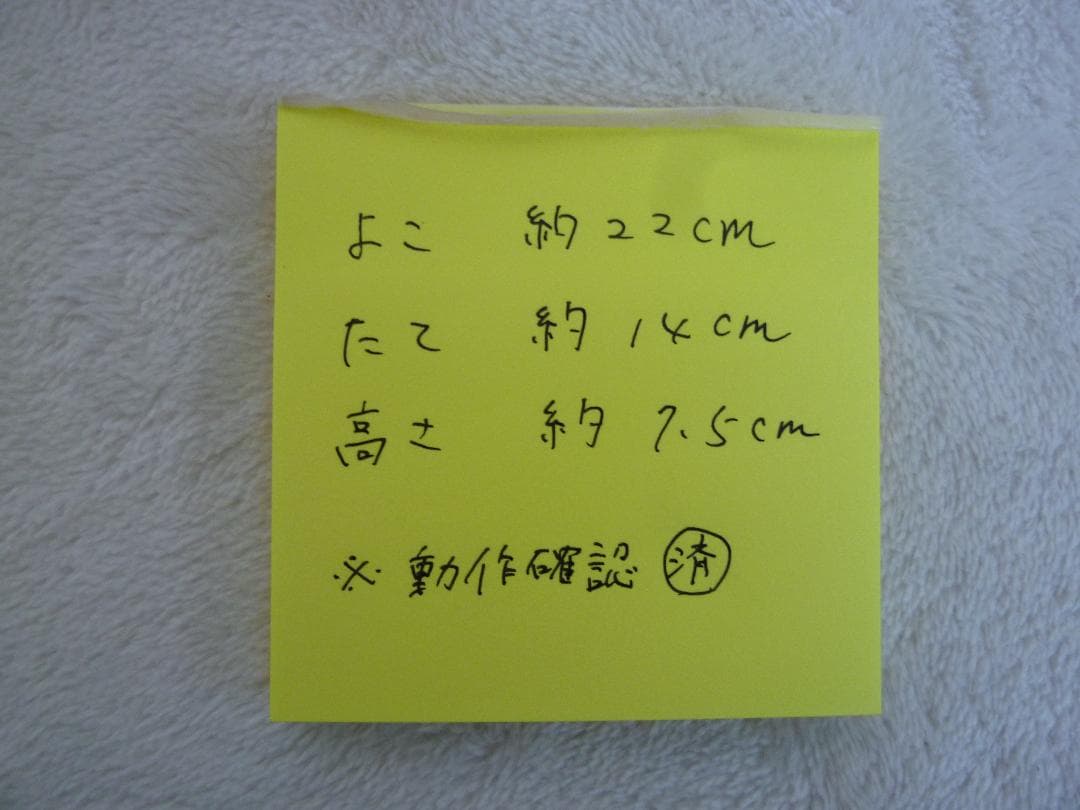 よこ 約22cm
たて 約14cm
高さ 約7.5cm
※動作確認㊡